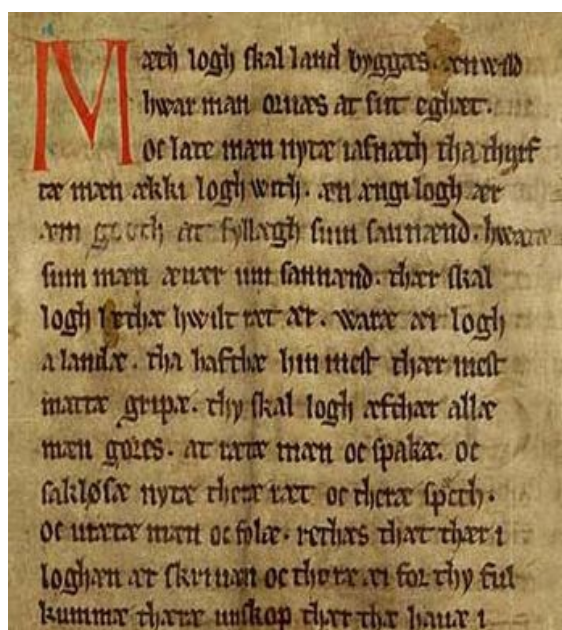 Mæth logh skal land byggæs. æn wild
hwar man oruæs at sit eghæt.
oc late mæn nytæ iafnæth tha thyrf
tæ mæn ækki logh with. æn ængi logh ær
æm gooth at fyllægh sum sannænd. hwaræ
sum mæn æuær um sannænd. thær skal
logh lethæ hwilt ræt ær. waræ æi logh
a landæ. tha hafthæ hin mest thær mest
mattæ gripæ. thy skal logh æfthær allæ
mæn gøres. at rætæ mæn oc spakæ. oc
sakløsæ nytæ theræ ræt oc theræ spech.
oc urætæ mæn oc folæ. rethæs that thær i
loghæn ær skriuæn oc thoræ æi for thy ful
kummæ thæræ unskop thær the hauæ i